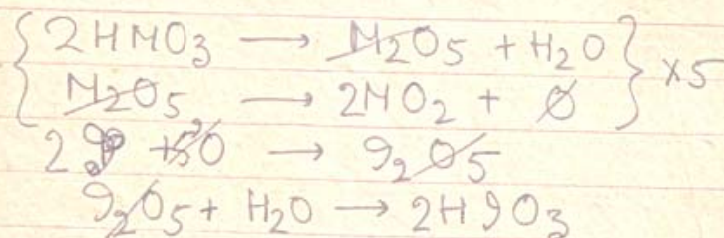 2HNO3 → N2O5 + H2O } x5
N2O5 → 2NO2 + O
2I + 5O → I2O5
I2O5 + H2O → 2HIO3